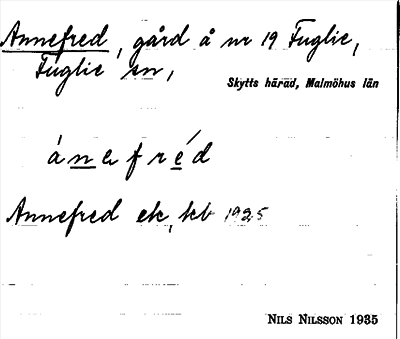 Annefred, gård å nr 19 Fuglie,
Fuglie sn,
Skytts härad, Malmöhus län
ánefréd
Annefred ek, kb 1925
NILS NILSSON 1935